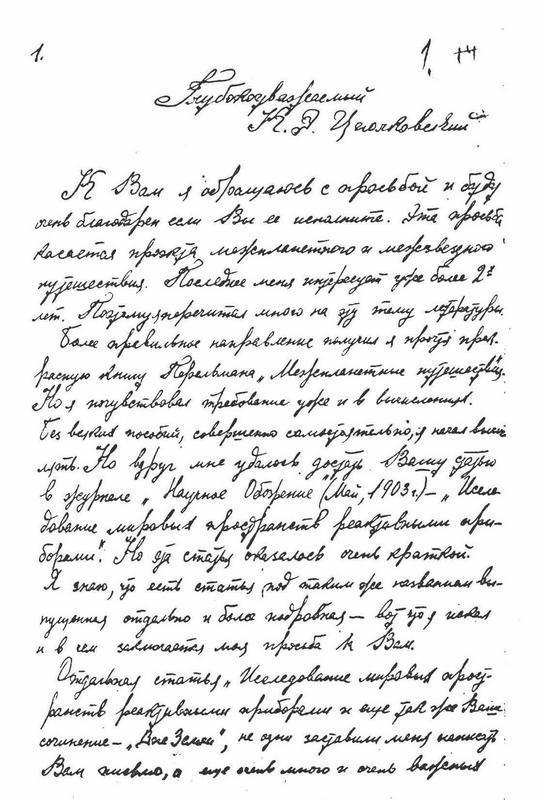 1.
1.
Глубокоуважаемый
К. Э. Циолковский
К Вам я обращаюсь с просьбой и буду
очень благодарен если Вы ее исполните. Эта просьба
касается проэкта межпланетного и межзвездного
путешествия. Последнее меня интересует уже более 2х
лет. Поэтому я перечитал много на эту тему литературы.
Более правильное направление получил я прочтя прек-
расную книгу Перельмана „Межпланетные путешествия".
Но я почувствовал требование уже и в вычислениях.
Без всяких пособий, совершенно самостоятельно, я начал вычис-
лять. Но вдруг мне удалось достать Вашу статью
в журнале „Научное Обозрение" (Май, 1903 г.) – „Иссле-
дование мировых пространств реактивными при-
борами". Но эта статья оказалась очень краткой.
Я знаю, что есть статья под таким же названием вы-
пущенная отдельно и более подробная – вот что я искал
и в чем заключается моя просьба к Вам.
Отдельная статья „Исследование мировых прост-
ранств реактивными приборами и еще так же Ваше
сочинение – „Вне Земли", не одни заставили меня написать
Вам письмо, а еще очень много и очень важных